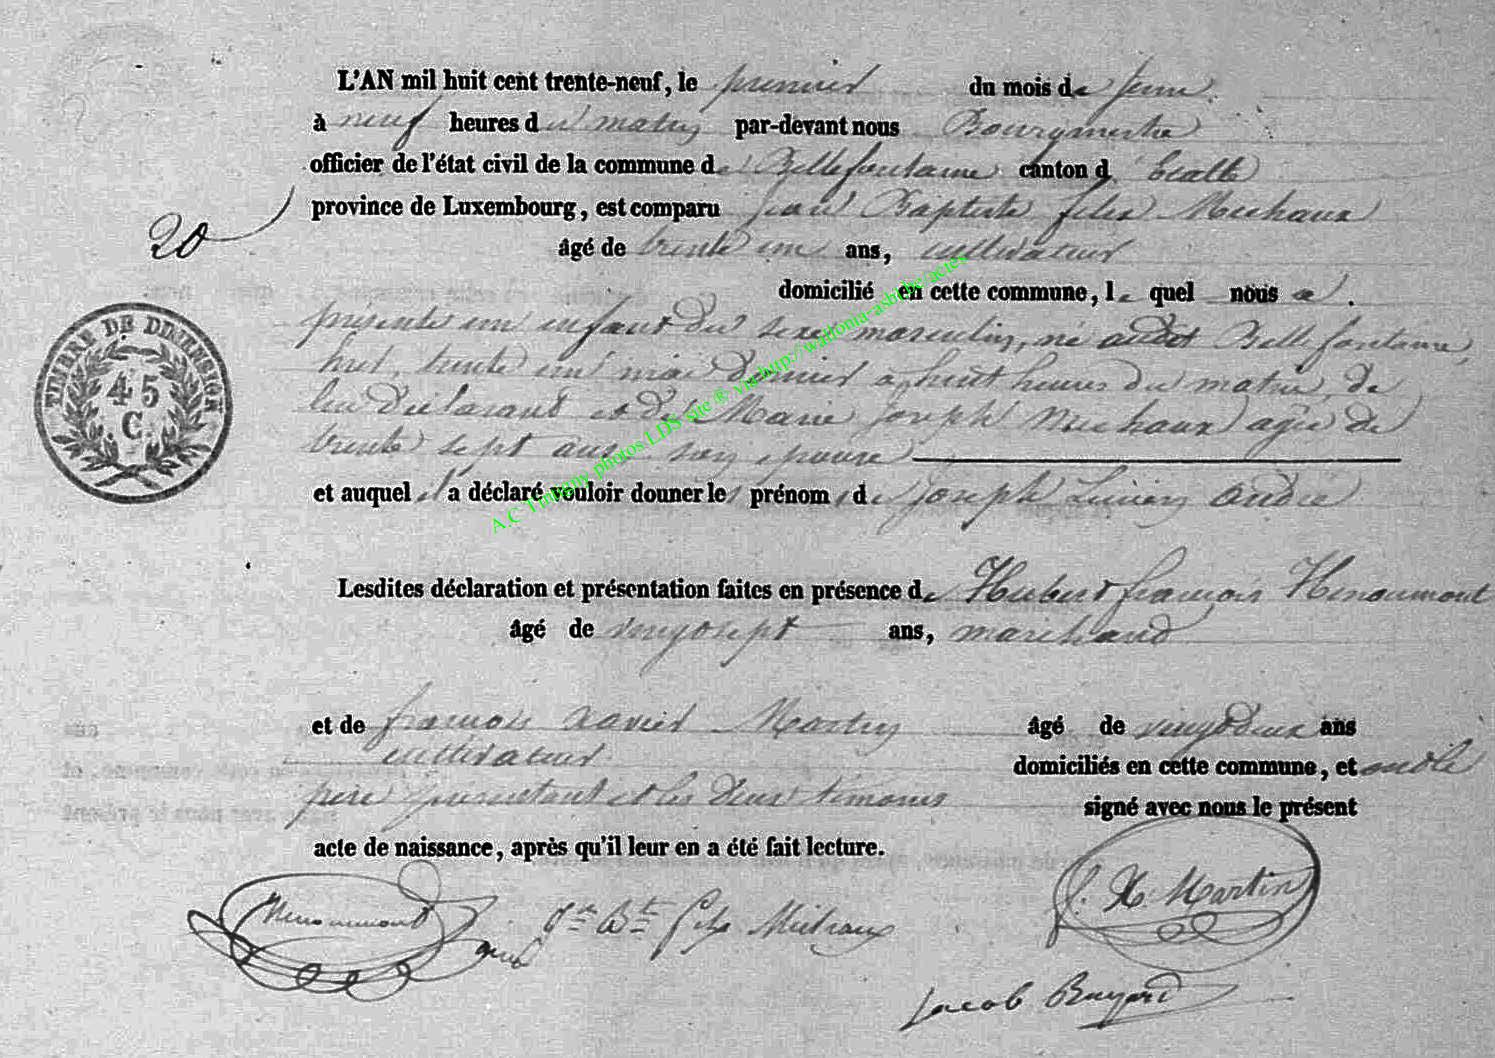 L'AN mil huit cent trente-neuf, le premier du mois de juin
à neuf heures du matin par-devant nous Bourgmestre
officier de l'état civil de la commune de Bellefontaine canton d' Etalle
province de Luxembourg, est comparu jean Baptiste feler Michaux
20
âgé de trente un ans, cultivateur
domicilié en cette commune, le quel nous a
présenté un enfant du sexe masculin, né audit Bellefontaine
hier, trente un mai dernier a huit heures du matin, de
lui déclarant et de Marie joseph Michaux agée de
trente sept ans son épouse
et auquel il a déclaré vouloir donner les prénoms de joseph Lucien andré
TIMBRE DE DIMENSION
45
C.
A.C Tintigny photos LDS site ® via http://wallonia-asbl.be/actes
Lesdites déclaration et présentation faites en présence de Hubert françois Henoumont
âgé de vingt sept ans, marchand
et de françois xavier Martin âgé de vingt deux ans
cultivateur domiciliés en cette commune, et ont le
père présentant et les deux témoins signé avec nous le présent
acte de naissance, après qu'il leur en a été fait lecture.
Henoumont Jn Bte Michaux f. X. Martin
Jacob